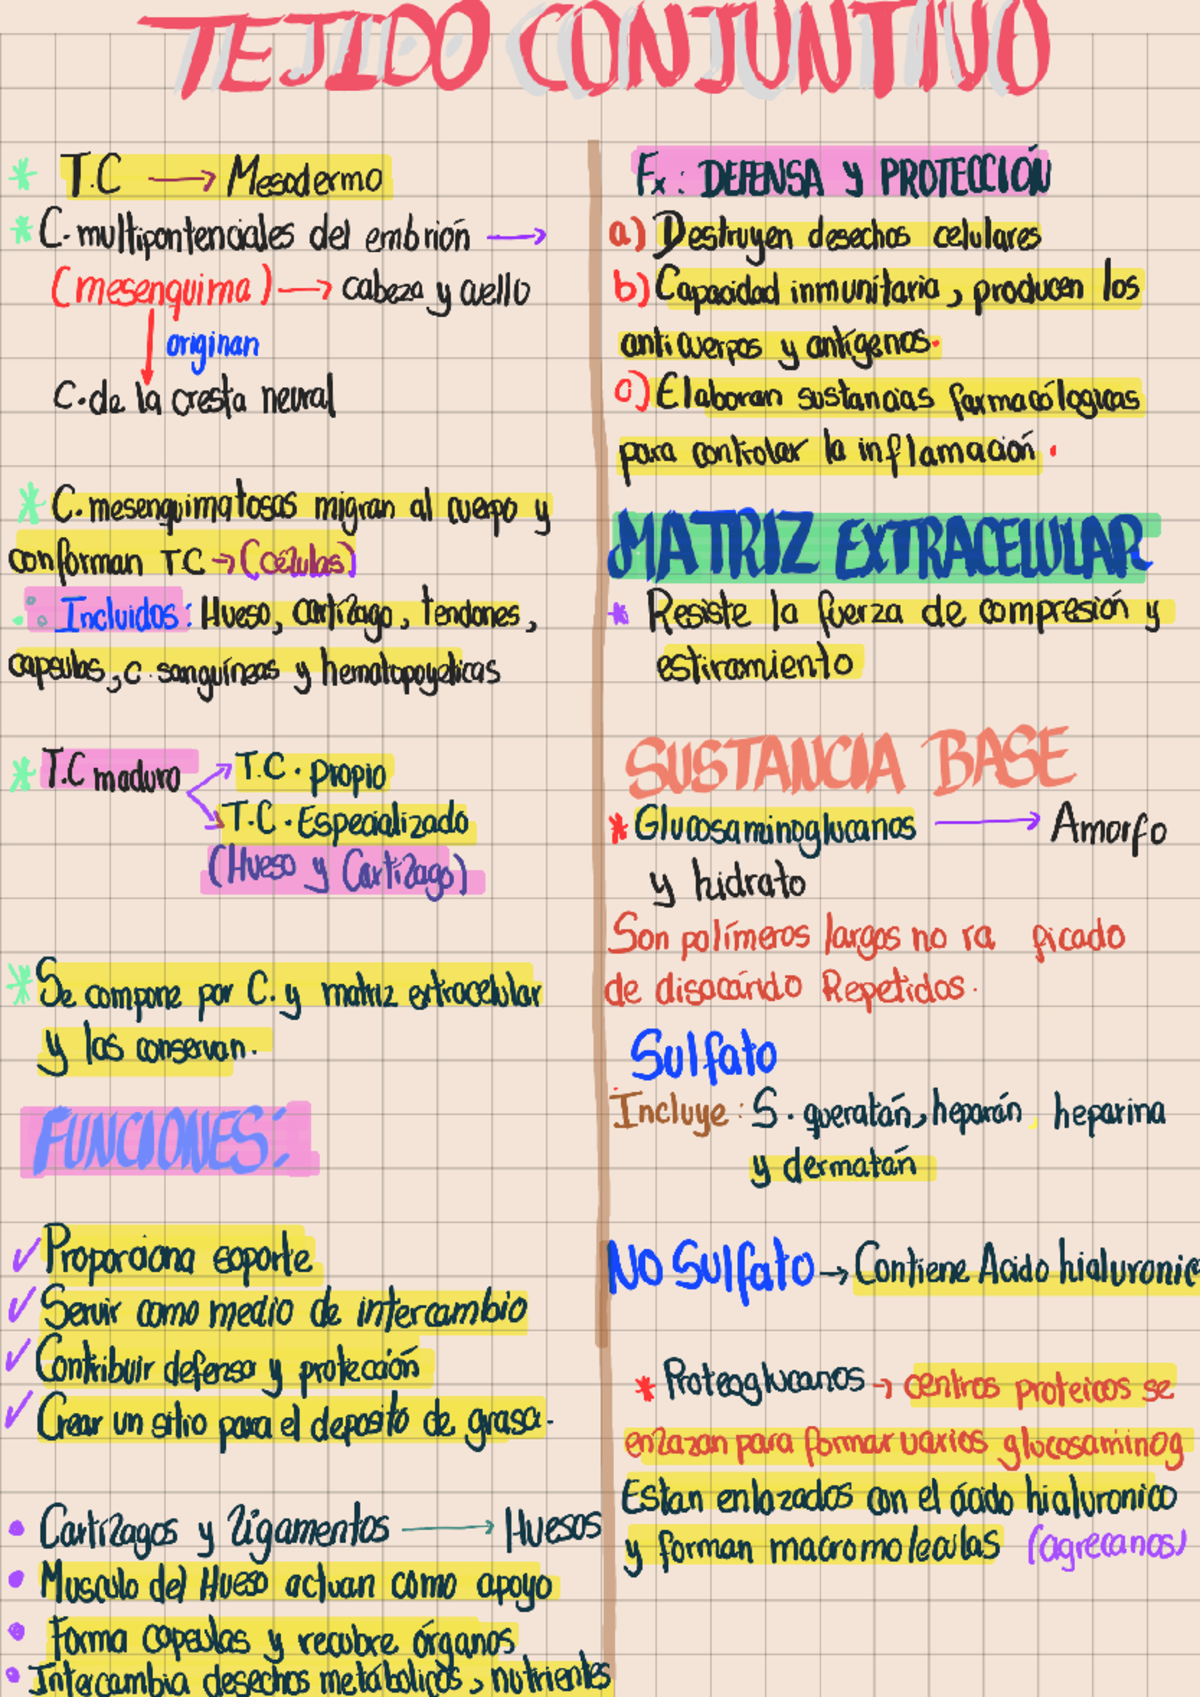 TEJIDO CONJUNTIVO
* T.C → Mesodermo
* C. multipontenciales del embrión →
(mesenquima) → cabeza y cuello
originan
C. de la cresta neural
* C. mesenquimatosas migran al cuerpo y
conforman TC → (células)
Incluidos: Hueso, cartílago, tendones,
capsulas, c. sanguíneas y hematopoyeticas
* T.C maduro → T.C. Propio
→ T.C. Especializado
(Hueso y Cartílago)
* Se compone por C. y matriz extracelular
y las conservan.
FUNCIONES:
✓ Proporciona soporte
✓ Servir como medio de intercambio
✓ Contribuir defensa y protección
✓ Crear un sitio para el deposito de grasa.
• Cartílagos y ligamentos → Huesos
• Musculo del Hueso actuan como apoyo
• Forma capsulas y recubre órganos
• Intercambia desechos metabolicos, nutrientes
Fx: DEFENSA y PROTECCIÓN
a) Destruyen desechos celulares
b) Capacidad inmunitaria, producen los
anticuerpos y antígenos.
c) Elaboran sustancias farmacólogicas
para controlar la inflamación.
MATRIZ EXTRACELULAR
* Resiste la fuerza de compresión y
estiramiento
SUSTANCIA BASE
* Glucosaminoglucanos → Amorfo
y hidrato
Son polímeros largos no ra ficado
de disacárido Repetidos.
Sulfato
Incluye: S. queratán, heparán, heparina
y dermatán
NO Sulfato → Contiene Acido hialuronic
* Proteoglucanos → centros proteicos se
enlazan para formar varios glucosaminog
Estan enlazados con el ácido hialuronico
y forman macromoleculas (agrecanos)